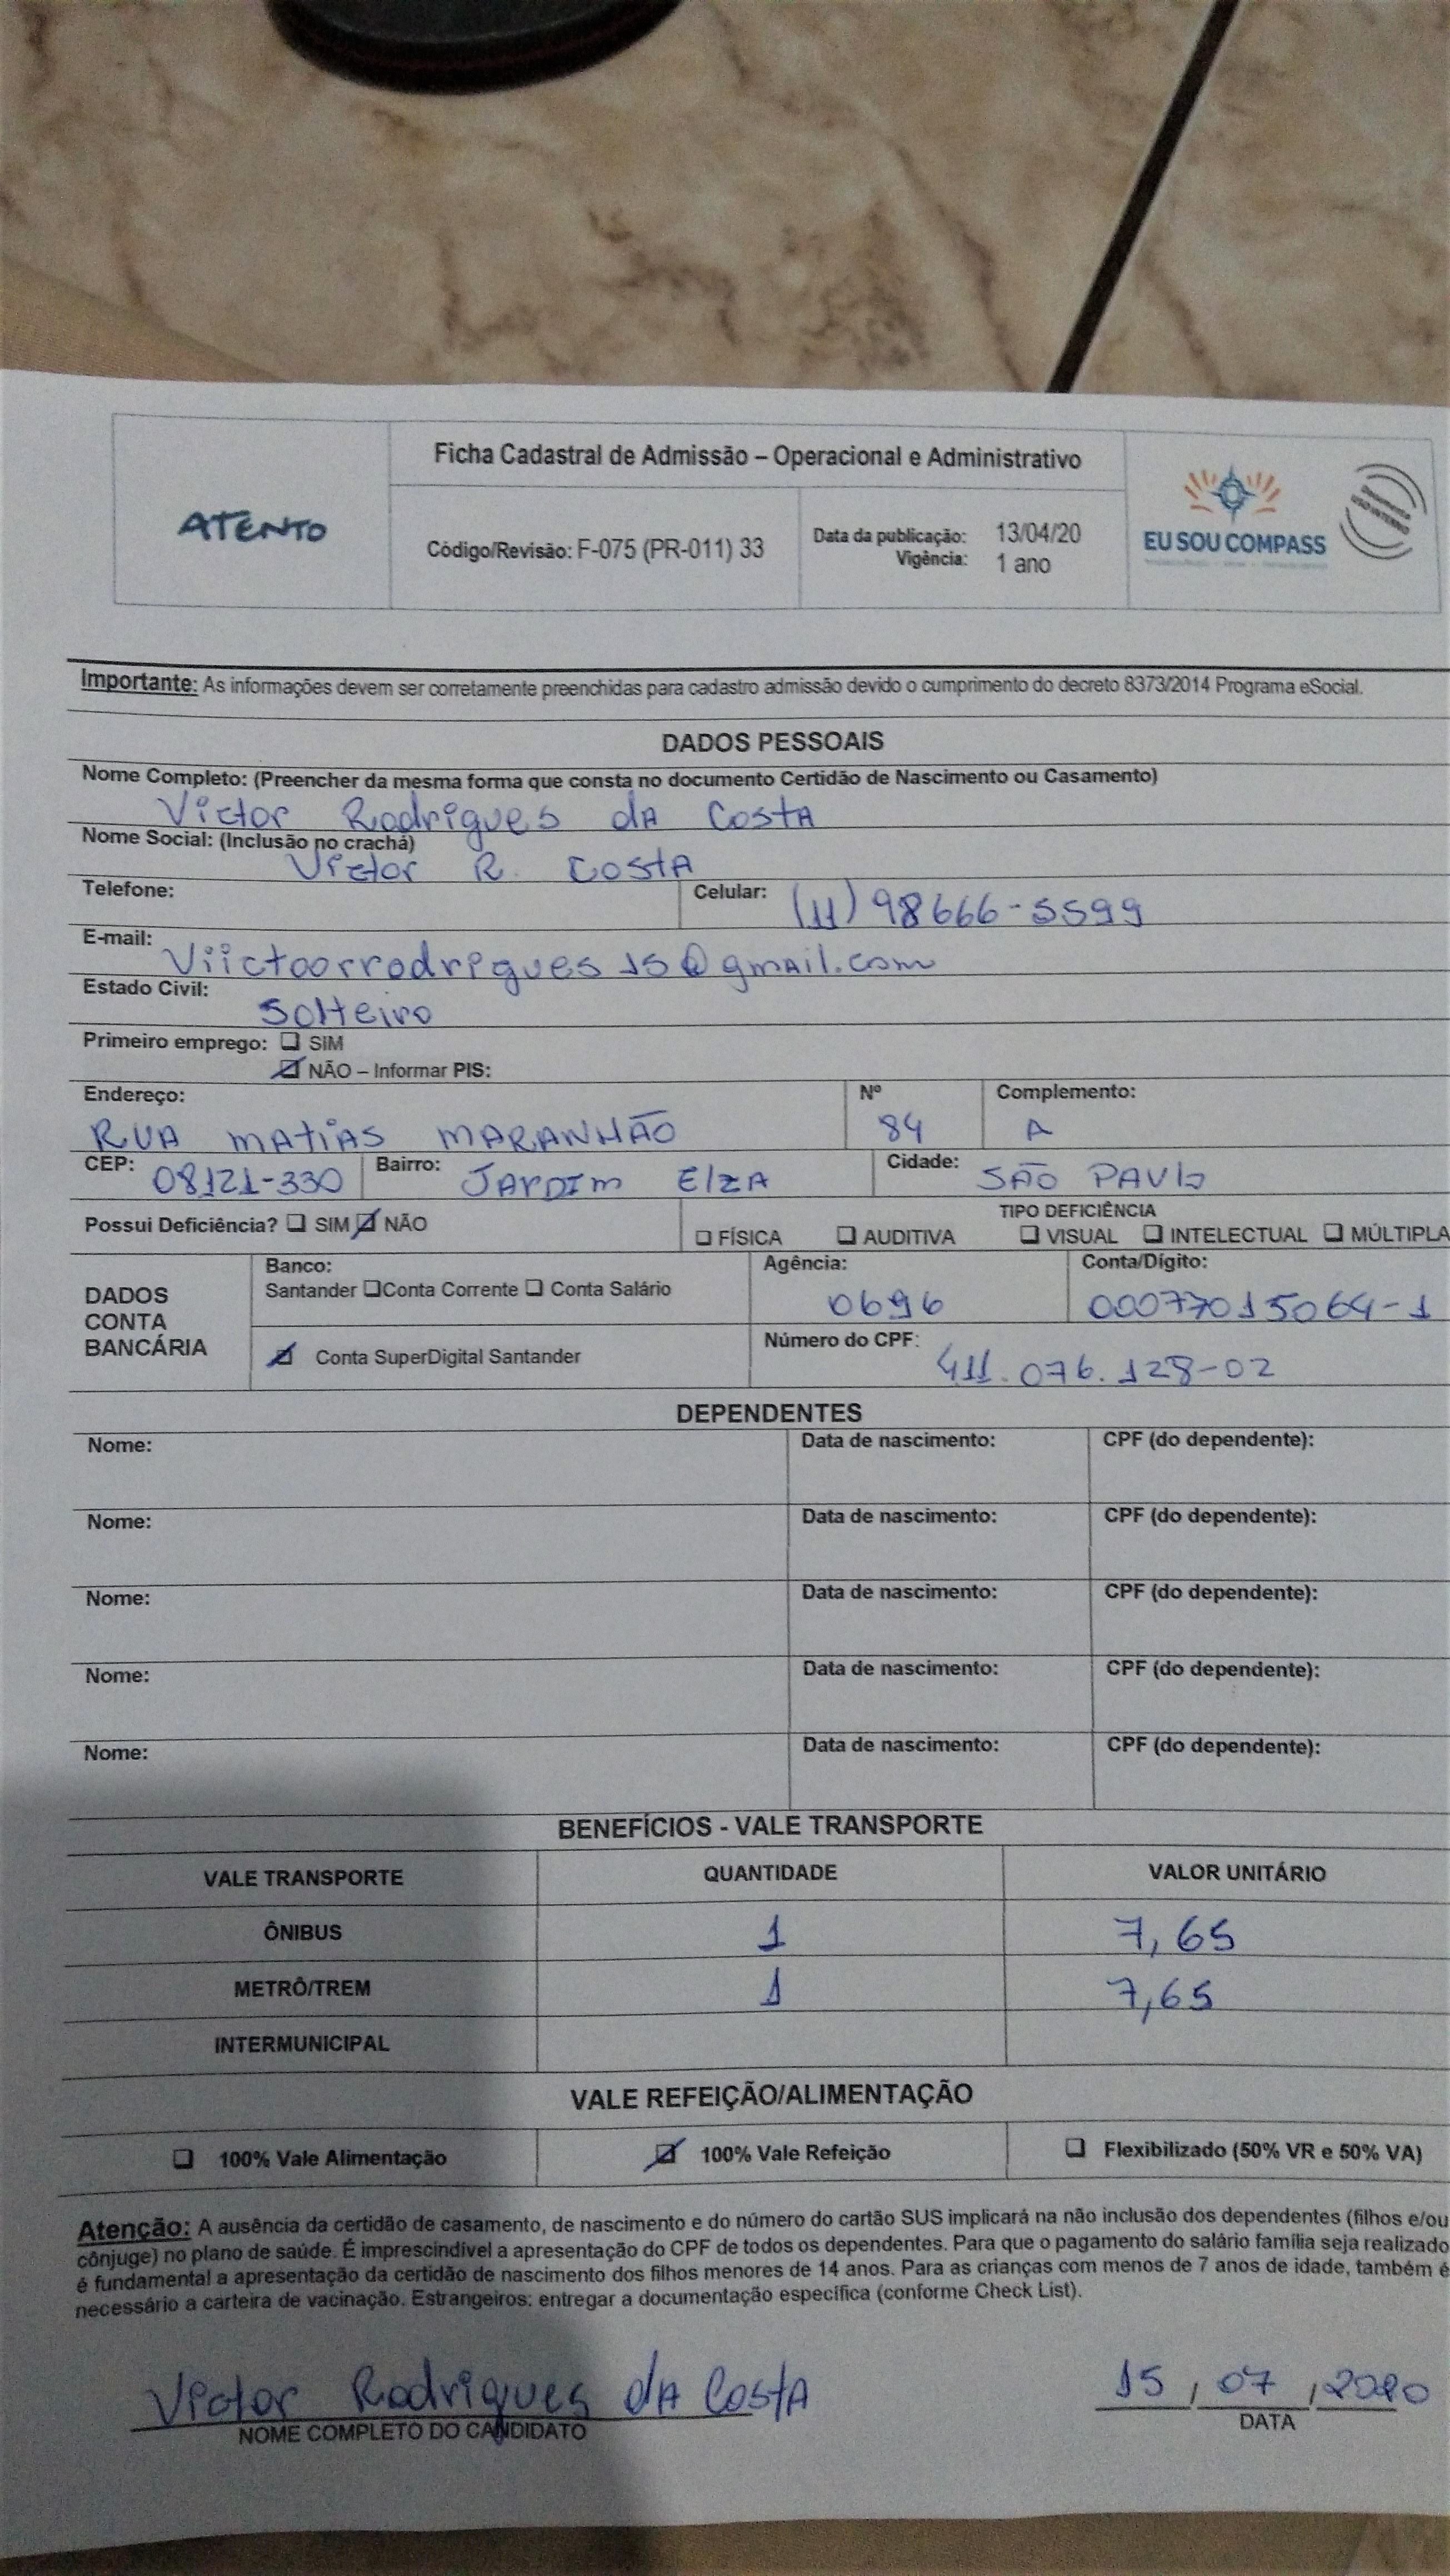 Ficha Cadastral de Admissão – Operacional e Administrativo
ATENTO
Código/Revisão: F-075 (PR-011) 33
Data da publicação: 13/04/20
Vigência: 1 ano
EU SOU COMPASS
Importante: As informações devem ser corretamente preenchidas para cadastro admissão devido o cumprimento do decreto 8373/2014 Programa eSocial.
DADOS PESSOAIS
Nome Completo: (Preencher da mesma forma que consta no documento Certidão de Nascimento ou Casamento)
Victor Rodrigues dA CostA
Nome Social: (Inclusão no crachá)
Victor R. CostA
Telefone: Celular: (11) 98666-5599
E-mail: Viictoorrodrigues15@gmail.com
Estado Civil: Solteiro
Primeiro emprego: ❑ SIM
☑ NÃO – Informar PIS:
Endereço: Nº Complemento:
RUA MATIAS MARANHÃO 84 A
CEP: 08121-330 Bairro: JARDIM ElzA Cidade: SÃO PAUlo
Possui Deficiência? ❑ SIM ☑ NÃO
TIPO DEFICIÊNCIA
❑ FÍSICA ❑ AUDITIVA ❑ VISUAL ❑ INTELECTUAL ❑ MÚLTIPLA
DADOS CONTA BANCÁRIA
Banco:
Santander ❑Conta Corrente ❑ Conta Salário
Agência: 0696
Conta/Dígito: 00077015064-1
☑ Conta SuperDigital Santander
Número do CPF: 411.076.128-02
DEPENDENTES
Nome: Data de nascimento: CPF (do dependente):
Nome: Data de nascimento: CPF (do dependente):
Nome: Data de nascimento: CPF (do dependente):
Nome: Data de nascimento: CPF (do dependente):
Nome: Data de nascimento: CPF (do dependente):
BENEFÍCIOS - VALE TRANSPORTE
VALE TRANSPORTE QUANTIDADE VALOR UNITÁRIO
ÔNIBUS 1 7,65
METRÔ/TREM 1 7,65
INTERMUNICIPAL
VALE REFEIÇÃO/ALIMENTAÇÃO
❑ 100% Vale Alimentação ☑ 100% Vale Refeição ❑ Flexibilizado (50% VR e 50% VA)
Atenção: A ausência da certidão de casamento, de nascimento e do número do cartão SUS implicará na não inclusão dos dependentes (filhos e/ou
cônjuge) no plano de saúde. É imprescindível a apresentação do CPF de todos os dependentes. Para que o pagamento do salário família seja realizado
é fundamental a apresentação da certidão de nascimento dos filhos menores de 14 anos. Para as crianças com menos de 7 anos de idade, também é
necessário a carteira de vacinação. Estrangeiros: entregar a documentação específica (conforme Check List).
Victor Rodrigues dA CostA 15/07/2020
NOME COMPLETO DO CANDIDATO DATA